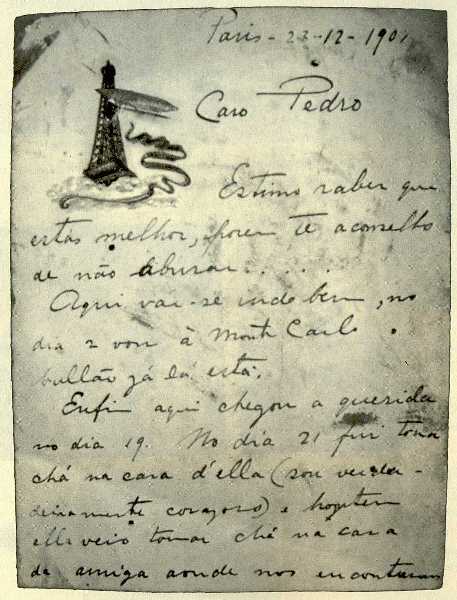 Paris - 23-12-1901
Caro Pedro
Estimo saber que
estás melhor, porem te aconselho
de não abusar.....
Aqui vai-se indo bem, no
dia 2 vou à Monte Carlo.
ballão já lá está.
Enfim aqui chegou a querida
no dia 19. No dia 21 fui tomar
chá na casa d'ella (sou verda-
deiramente corajoso) e hontem
ella veio tomar chá na casa
da amiga aonde nos encontramos